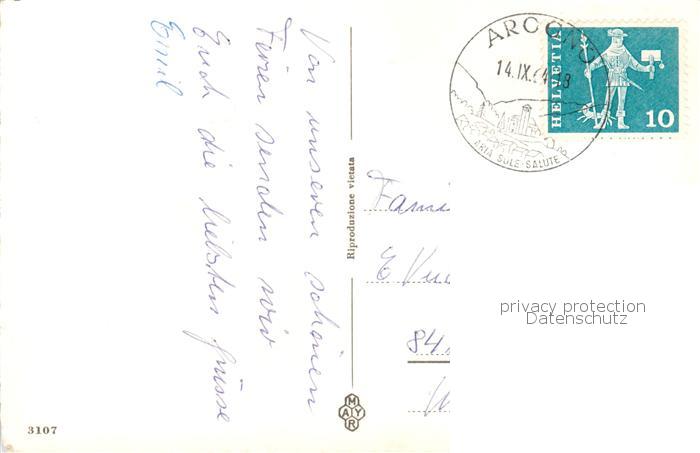 Von unseren schönen
Ferien senden wir
Euch die liebsten Grüsse
Emil
Riproduzione vietata
MAYR
3107
14.IX.64-18
ARIA SOLE SALUTE
HELVETIA
10
Fami
E
84
privacy protection
Datenschutz